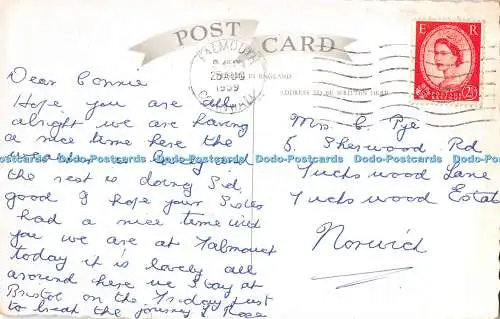 POST CARD
FALMOUTH
CORNWALL
25 AUG
1959
IN ENGLAND
ADDRESS TO BE WRITTEN HERE
E R
2½D
Dear Connie
Hope you are all
alright we are having
a nice time here the
weather is lovely and
the rest is doing Sid
good I hope your Sister
had a nice time with
you we are at Falmouth
today it is lovely all
around here we stay at
Bristol on the Friday just
to break the journey Rose
Mrs C Pye
5 Sherwood Rd
Tuckswood Lane
Tuckswood Estate
Norwich
Dodo-Postcards Dodo-Postcards Dodo-Postcards Dodo-Postcards Dodo-Postcards